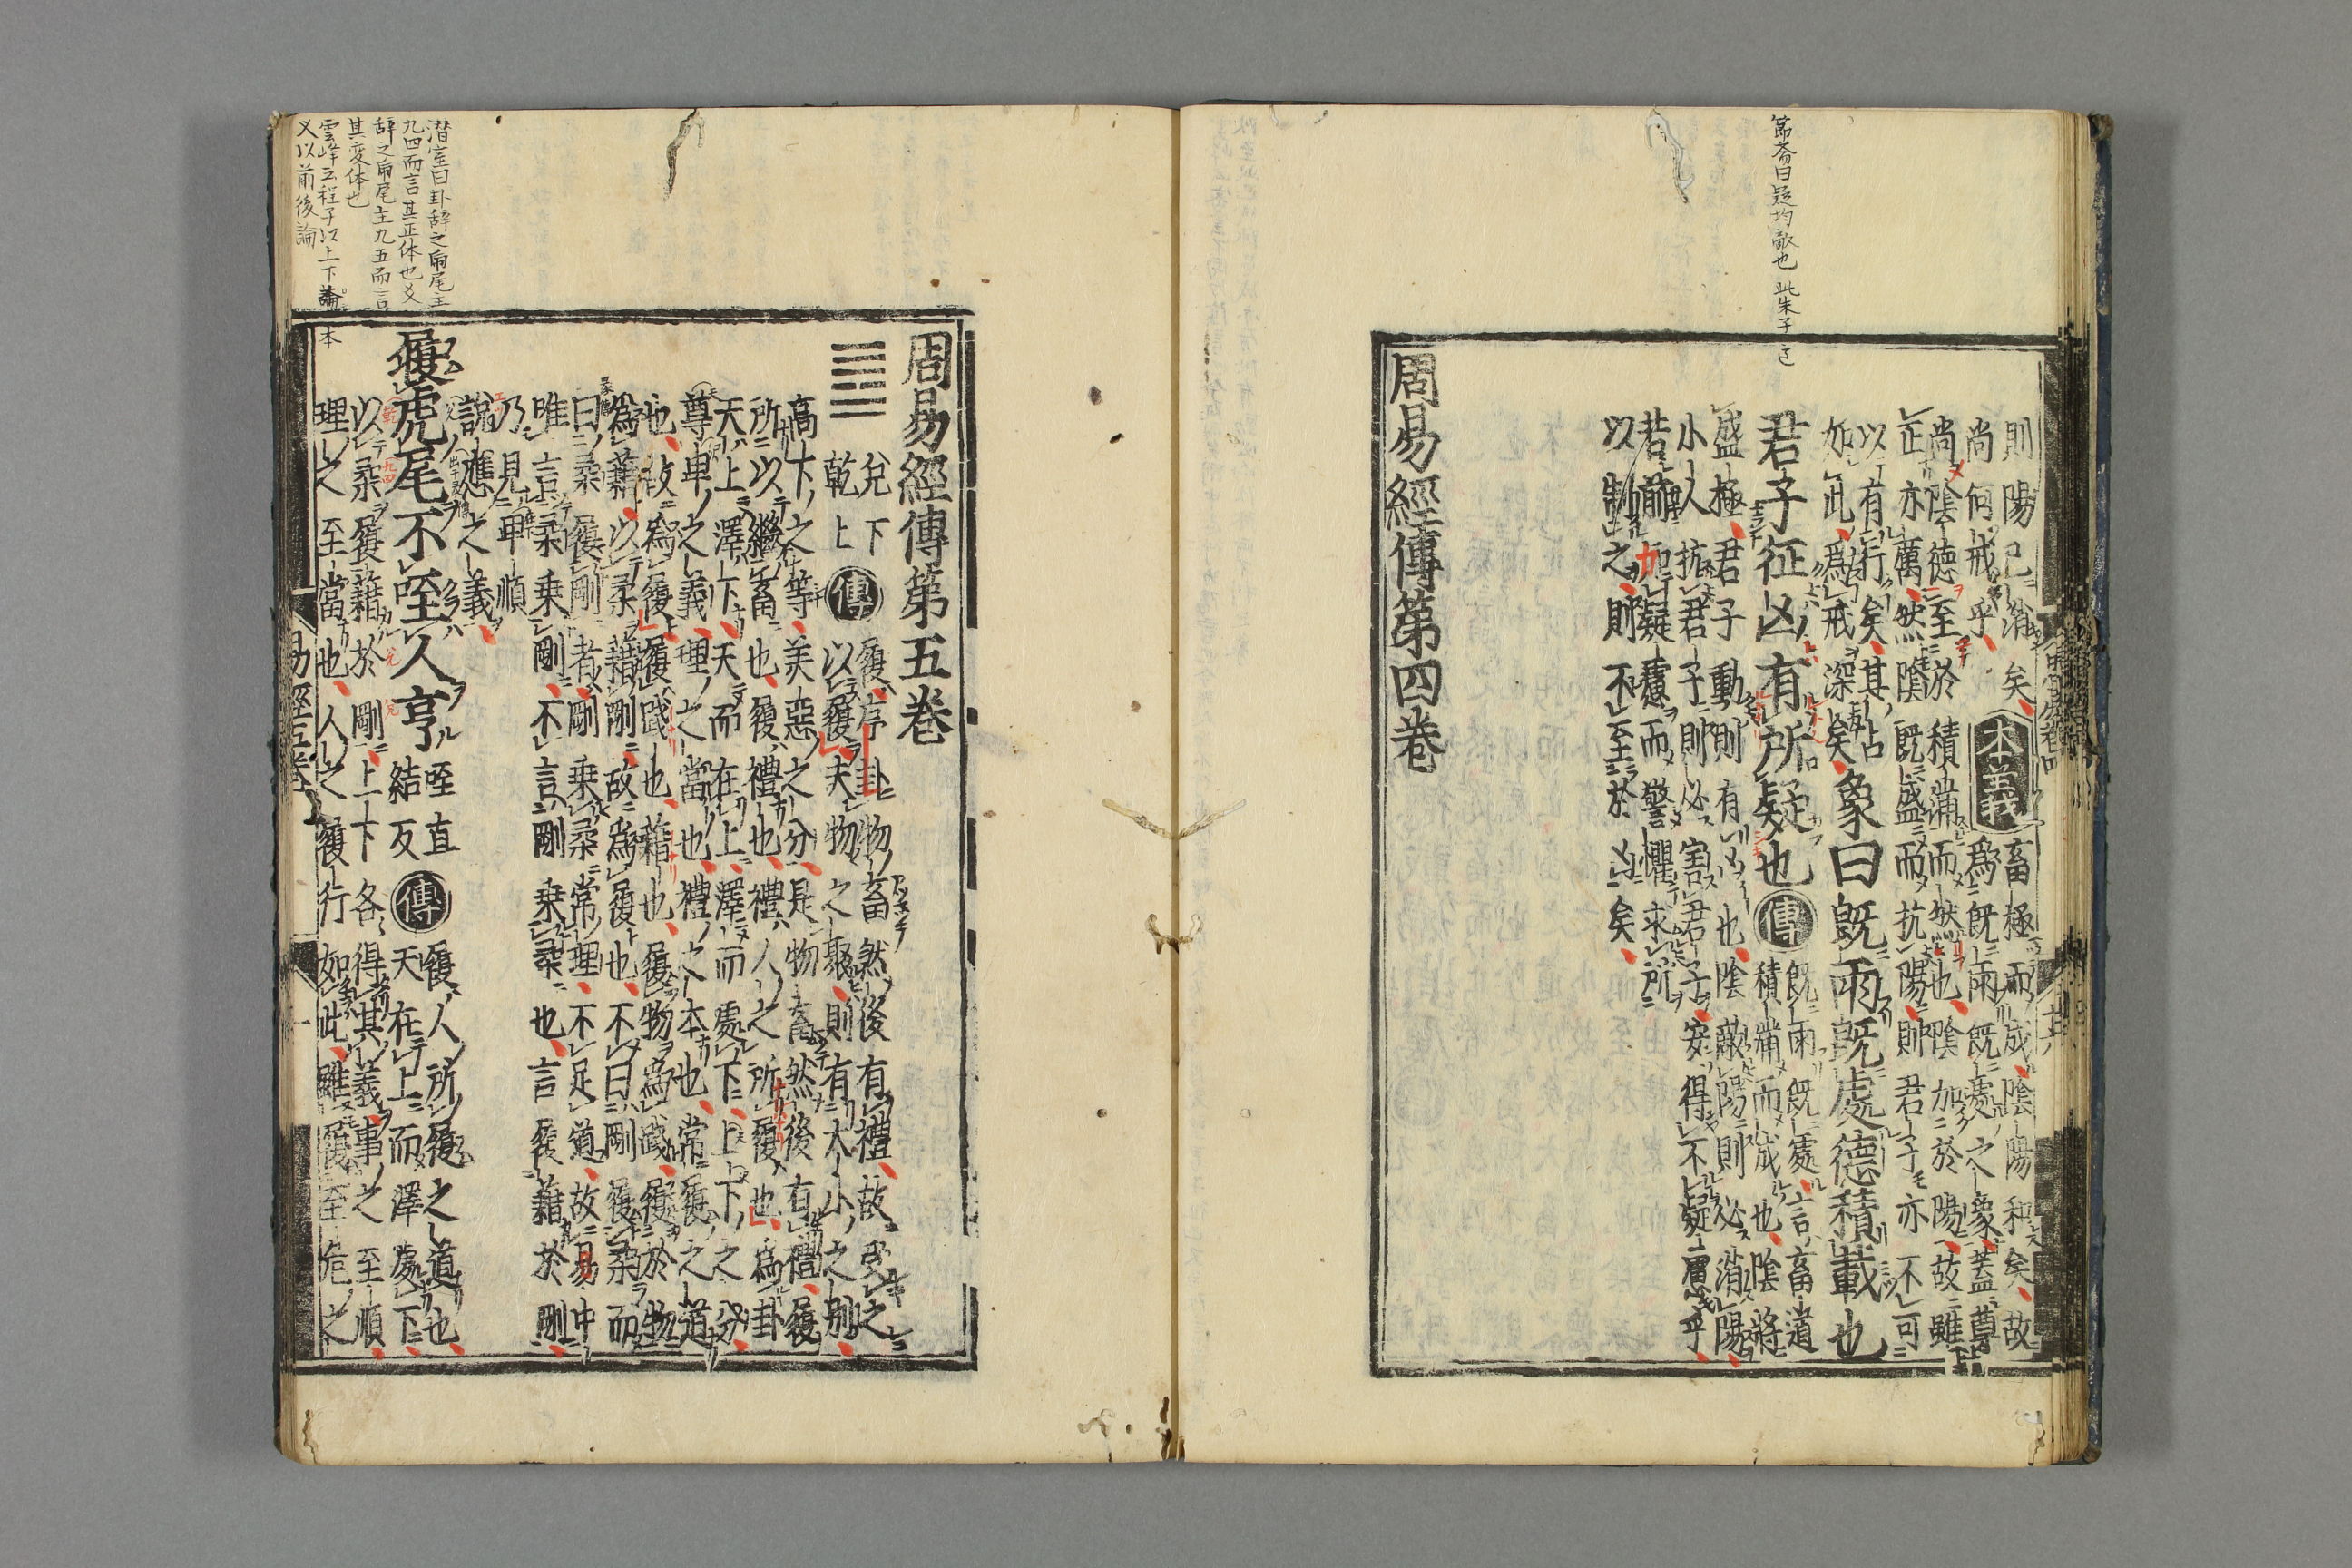 節齋曰疑均敵也 此朱子
則陽已消矣
尚何戒乎 本義 畜極而成陰陽和矣故
爲既雨既處之象蓋尊
尚陰德至於積滿而然也陰加於陽故雖
正亦厲然陰既盛而抗陽則君子亦不可
以有行矣其占
如此爲戒深矣 象曰既雨既處德積載也
君子征凶有所疑也 傳 既雨既處言畜道
積滿而成也陰將
盛極君子動則有凶也陰敵陽則必消陽
小人抗君子則必害君子安得不疑慮乎
若前知疑慮而警懼求所
以制之則不至於凶矣
周易經傳第四卷
周易經傳第五卷
兌下
乾上 傳 履序卦物畜然後有禮故受之
以履夫物之聚則有大小之別
高下之等美惡之分是物畜然後有禮履
所以繼畜也履禮也禮人之所履也爲卦
天上澤下天而在上澤而處下上下之分
尊卑之義理之當也禮之本也常履之道
也故爲履履踐也藉也履物爲踐履於物
爲藉以柔藉剛故爲履也不曰剛履柔而
曰柔履剛者剛乘柔常理不足道故易中
唯言柔乘剛不言剛乘柔也言履藉於剛
乃見卑順
說應之義
履虎尾不咥人亨 咥直
結反 傳 履人所履之道也
天在上而澤處下
以柔履藉於剛上下各得其義事之至順
理之至當也人之履行如此雖履至危之
易經五卷
潛室曰卦辞之履尾主
九四而言其正体也爻
辞之履尾主九五而言
其変体也
雲峰云程子以上下論本
义以前後論